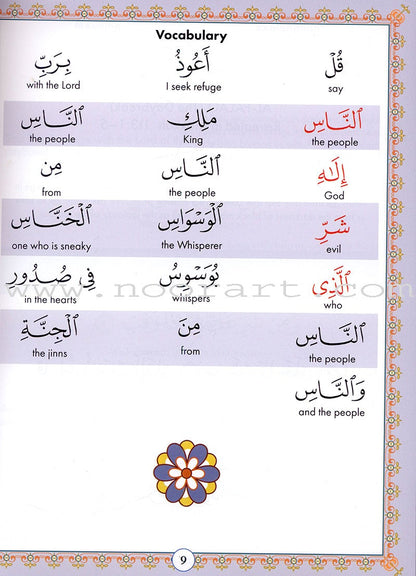 Vocabulary
قُلْ أَعُوذُ بِرَبِّ
say I seek refuge with the Lord
ٱلنَّاسِ مَلِكِ ٱلنَّاسِ
the people King the people
إِلَٰهِ ٱلنَّاسِ مِن
God the people from
شَرِّ ٱلْوَسْوَاسِ ٱلْخَنَّاسِ
evil the Whisperer one who is sneaky
ٱلَّذِى يُوَسْوِسُ فِى صُدُورِ
who whispers in the hearts
www.noorart.com
ٱلنَّاسِ مِنَ ٱلْجِنَّةِ
the people from the jinns
وَٱلنَّاسِ
and the people
9